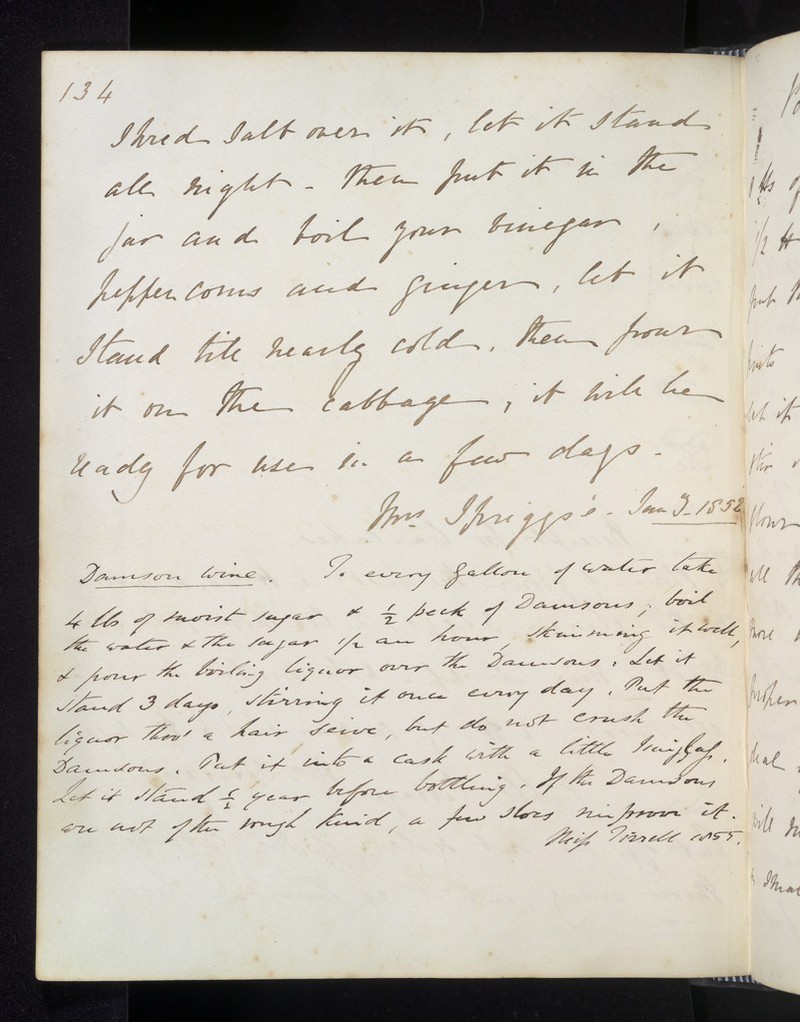 134
Shred Salt over it, let it stand
all night - then put it in the
jar and boil your vinegar,
peppercorns and ginger, let it
Stand till nearly cold. then pour
it on the cabbage, it will be
ready for use in a few days.
Mrs Spriggs's - Jan 3. 1852
Damson Wine. To every gallon of water take
4 lbs of moist sugar & ½ peck of Damsons; boil
the water & the sugar 1/2 an hour, skimming it well,
& pour the boiling liquor over the Damsons. Let it
stand 3 days, stirring it once every day. Put the
liquor thro' a hair seive, but do not crush the
Damsons. Put it into a cask with a little Isinglass.
Let it stand ½ year before bottling. If the Damsons
are not of the rough kind, a few sloes improve it.
Miss Tirrell 1855.